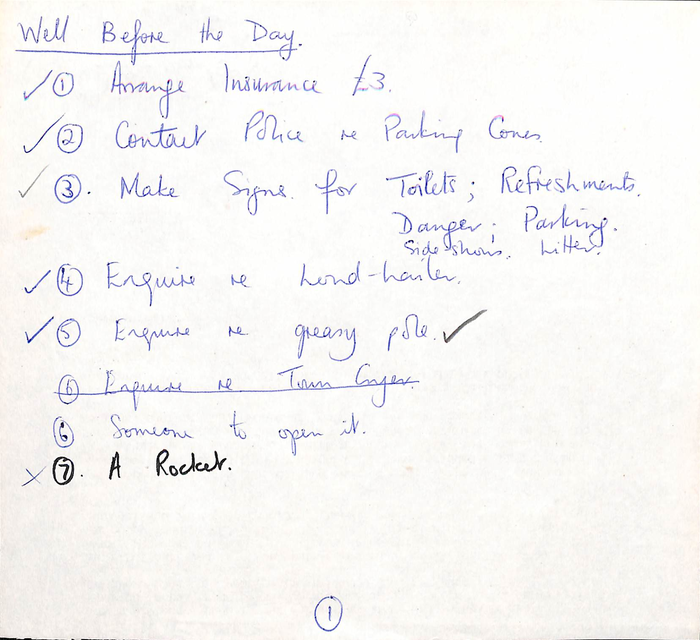 Well Before the Day.
✓ ① Arrange Insurance £3.
✓ ② Contact Police re Parking Cones.
✓ ③. Make Signs for Toilets; Refreshments.
Danger; Parking.
Side-shows. Litter.
✓ ④ Enquire re Loud-hailer.
✓ ⑤ Enquire re greasy pole. ✓
⑥ Enquire re Town Cryer.
⑥ Someone to open it.
✗ ⑦. A Rocket.
①